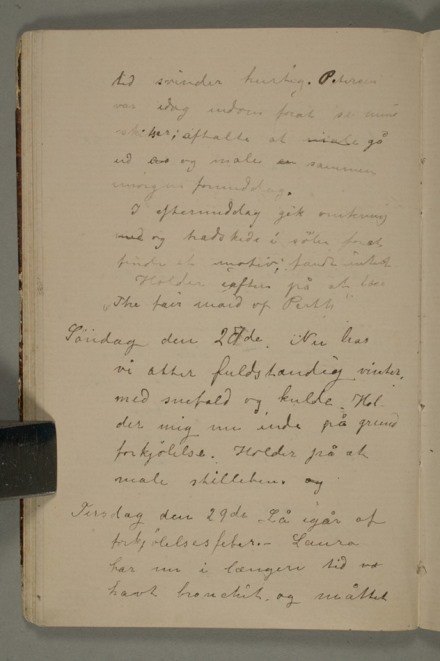 tid svinder hurtig. Petersen
var idag indom forat se mine
skisser; aftalte at gå
ud og male sammen
imorgen formiddag.
I eftermiddag gik omkring
og traskede i sølen forat
finde et motiv; fandt intet
Holder iaften på at læse
„The fair maid of Perth"
Søndag den 27de. Nu har
vi atter fuldstændig vinter,
med snefald og kulde. Hol-
der mig nu inde på grund
forkjølelse. Holder på at
male stilleben. og
Tirsdag den 29de. Lå igår af
forkjølelsesfeber. – Laura
har nu i længere tid
havt bronchit. og måttet